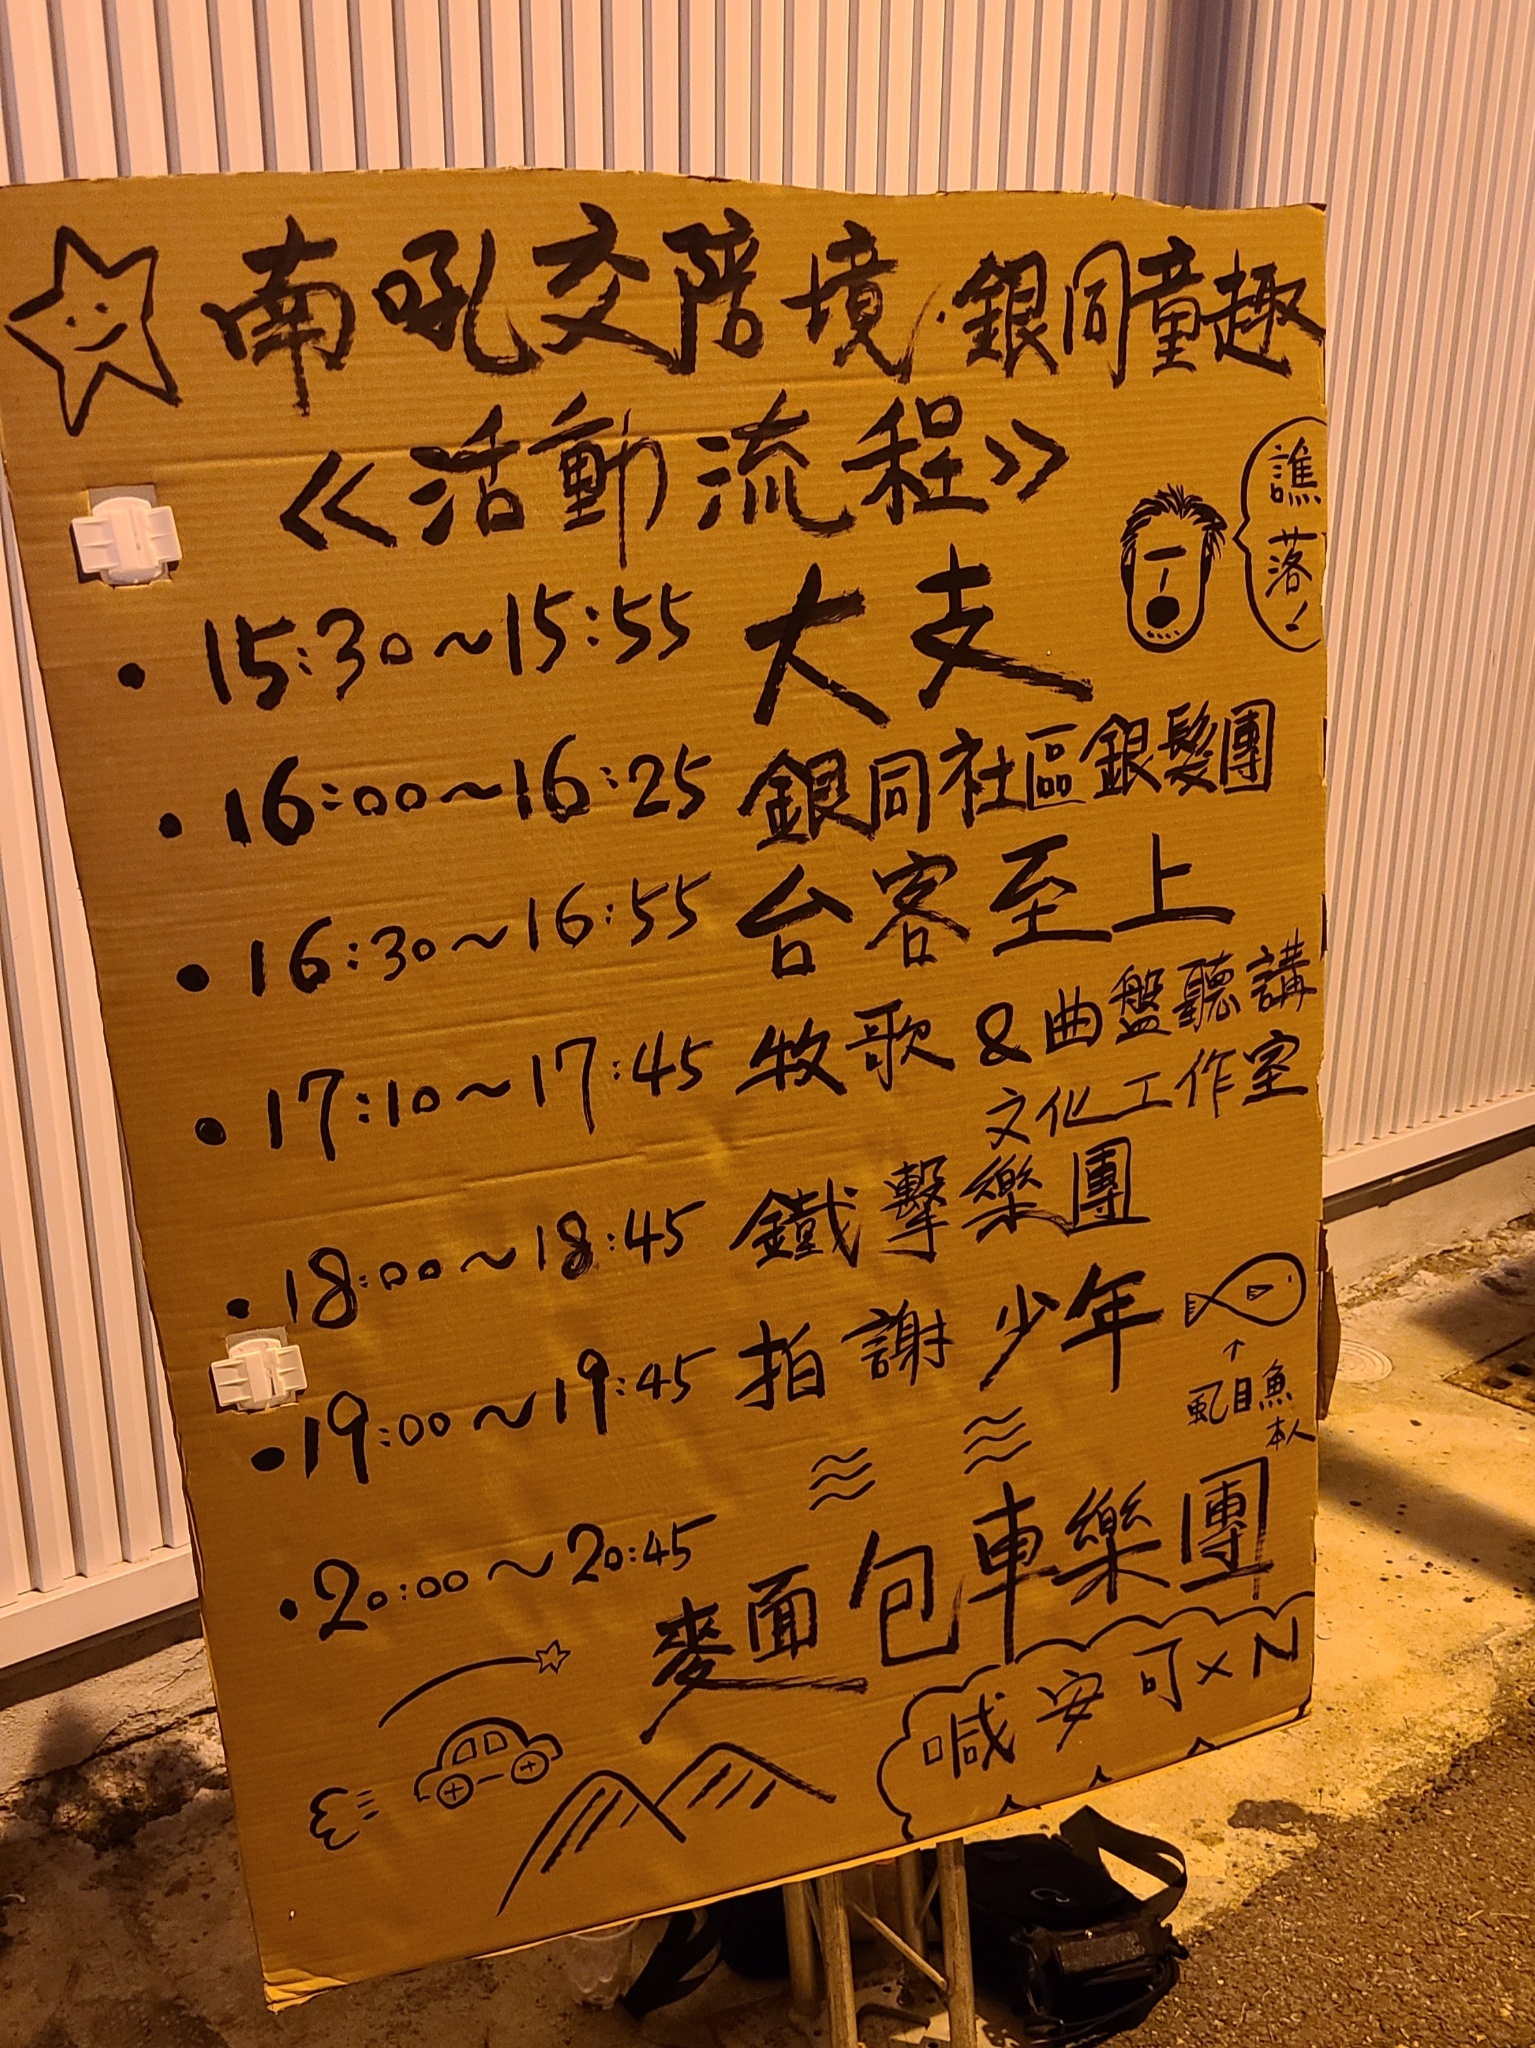 南吼交陪境·銀同童趣
《活動流程》
• 15:30~15:55 大支
譙落!
• 16:00~16:25 銀同社區銀髮團
• 16:30~16:55 台客至上
• 17:10~17:45 牧歌&曲盤聽講
文化工作室
• 18:00~18:45 鐵擊樂團
• 19:00~19:45 拍謝少年
↑
虱目魚
本人
• 20:00~20:45 麥面包車樂團
喊安可xN